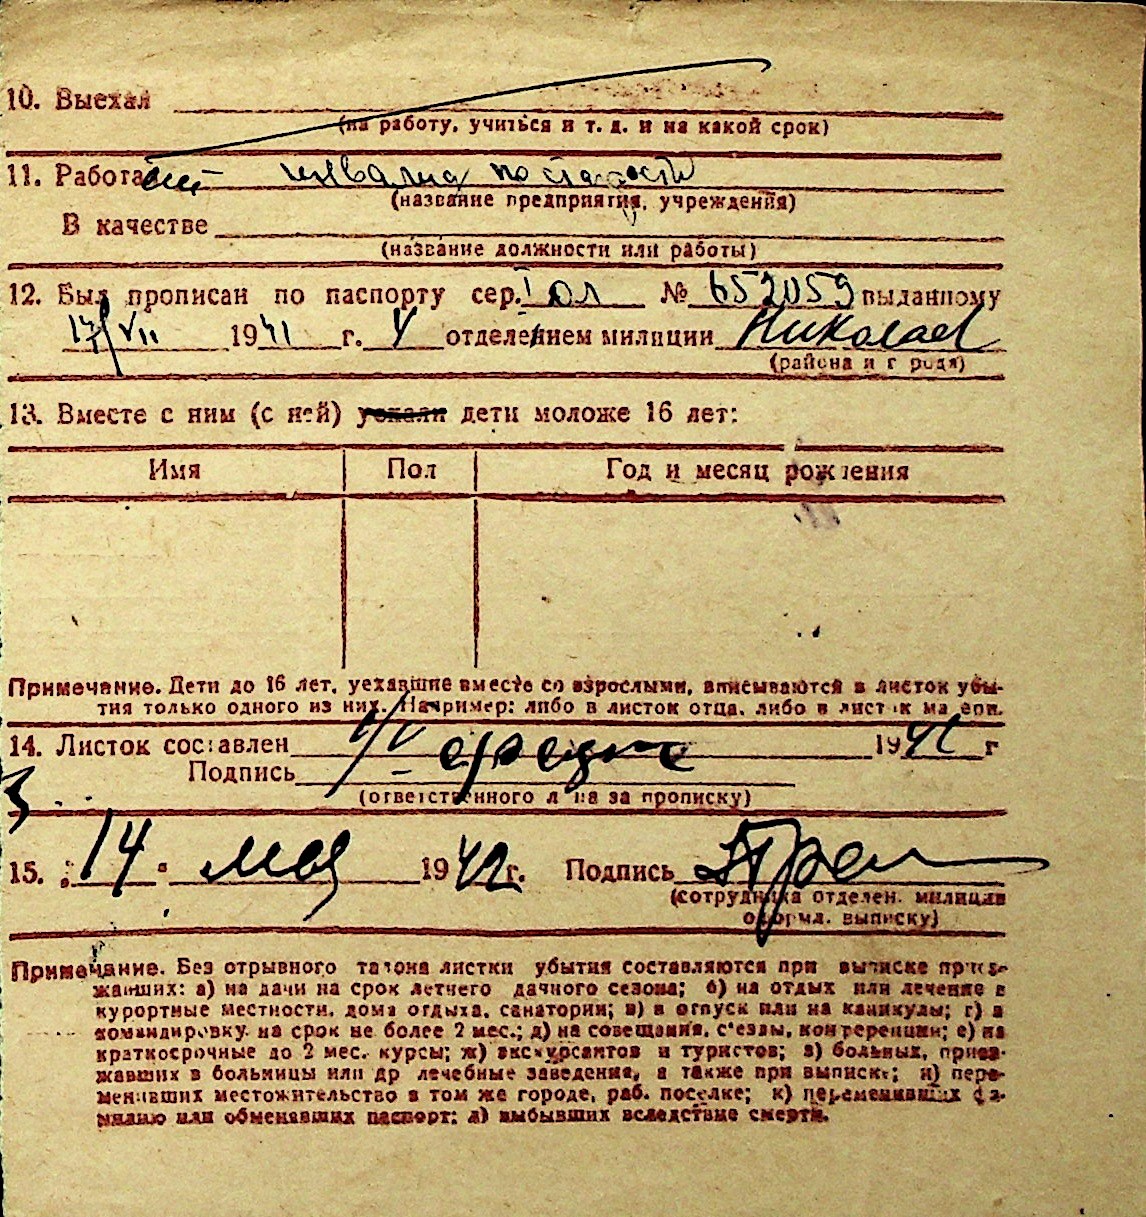 10. Выехал
(на работу, учиться и т. д. и на какой срок)
11. Работа инвалид по старости
(название предприятия, учреждения)
В качестве
(название должности или работы)
12. Был прописан по паспорту сер. № 652059 выданному
17/VII 1941 г. V отделением милиции Николаев
(района и г рода)
13. Вместе с ним (с ней) уехали дети моложе 16 лет:
Имя Пол Год и месяц рождения
Примечание. Дети до 16 лет, уехавшие вместе со взрослыми, вписываются в листок убы-
тия только одного из них. Например: либо в листок отца, либо в листок матери.
14. Листок составлен 1942 г
Подпись
(ответственного лица за прописку)
15. „14" мая 1942 г. Подпись
(сотрудника отделен. милиции
оформл. выписку)
Примечание. Без отрывного талона листки убытия составляются при выписке приез-
жавших: а) на дачи на срок летнего дачного сезона; б) на отдых или лечение в
курортные местности, дома отдыха, санатории; в) в отпуск или на каникулы; г) в
командировку на срок не более 2 мес.; д) на совещания, с'езды, конференции; е) на
краткосрочные до 2 мес. курсы; ж) экскурсантов и туристов; з) больных, приез-
жавших в больницы или др лечебные заведения, а также при выписке; и) пере-
менивших местожительство в том же городе, раб. поселке; к) переменивших фа-
милию или обменявших паспорт; л) выбывших вследствие смерти.